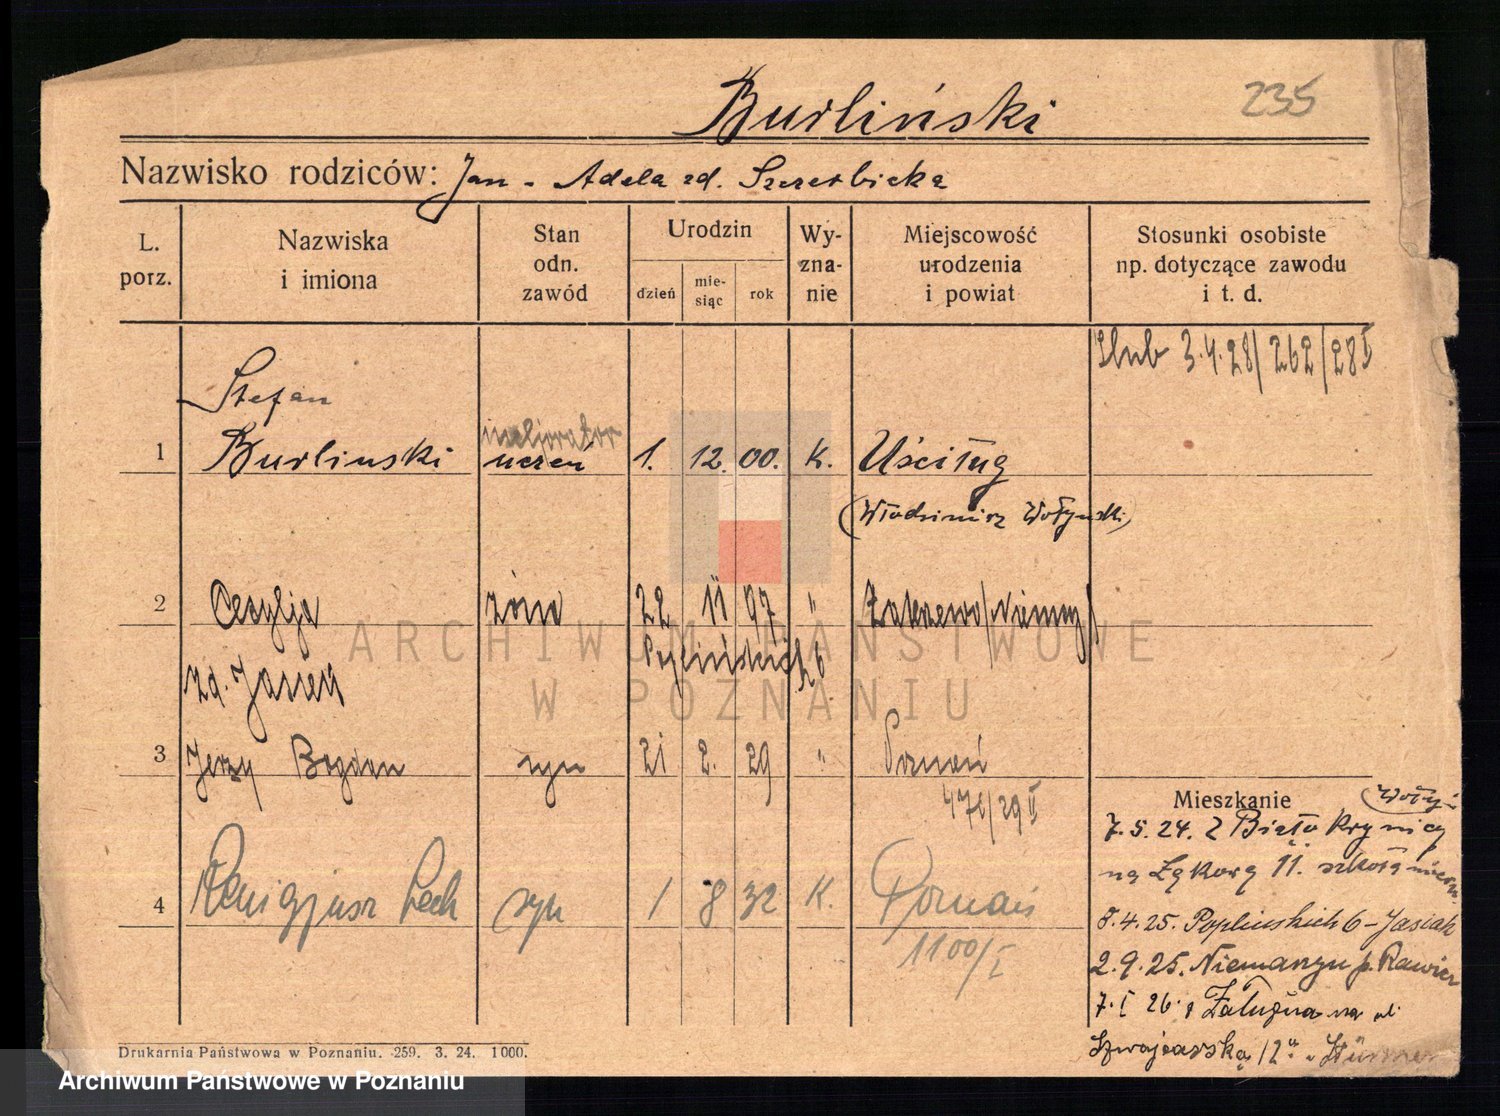 Burliński
235
Nazwisko rodziców: Jan - Adela zd. Szczerbicka
L. porz.
Nazwiska i imiona
Stan odn. zawód
Urodzin
dzień
miesiąc
rok
Wyznanie
Miejscowość urodzenia i powiat
Stosunki osobiste np. dotyczące zawodu i t. d.
Ślub 3.4.28/262/28 I
Stefan
1 Burlinski
meliorator
uczeń 1. 12. 00. K. Uściług
(Włodzimierz Wołyński)
2 Cecylja żona 22 11 97 " Zakrzewo/Niemcy/
zd. Jasiek
Poplińskich 6
3 Jerzy Bogdan syn 21 2. 29 " Poznań
471/29 II
4 Remigjusz Lech syn 1 8 32 K. Poznań
1100/I
Mieszkanie
(Wołyń
7.5.24. z Biało Krynicy
na Łąkową 11.
8.4.25. Poplinskich 6 - Jasiak
2.9.25. Niemarzyn p. Rawicz
7. I 26. z Załużna na ul.
Szwajcarską 12
Drukarnia Państwowa w Poznaniu. 259. 3. 24. 1000.
ARCHIWUM PAŃSTWOWE
W POZNANIU
Archiwum Państwowe w Poznaniu